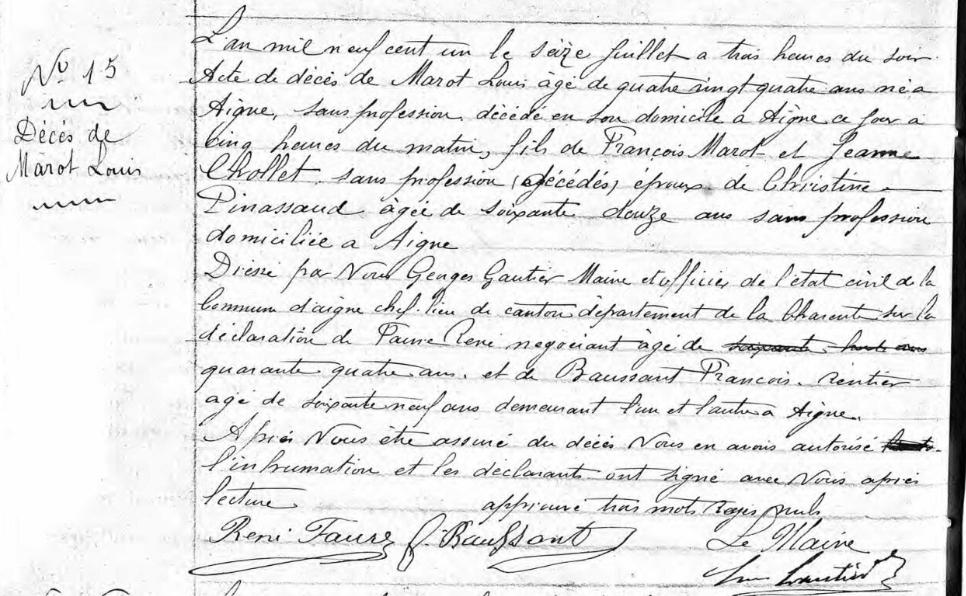 No 15
Décès de
Marot Louis
L'an mil neuf cent un le seize Juillet a trois heures du soir
Acte de décès de Marot Louis âgé de quatre vingt quatre ans né a
Aigre, sans profession décédé en son domicile a Aigre ce jour a
cinq heures du matin, fils de François Marot et Jeanne
Chollet sans profession (décédés) époux de Christine
Pinassaud âgée de soixante douze ans sans profession
domiciliée a Aigre
Dressé par Nous Georges Gautier Maire et officier de l'état civil de la
Commune d'aigre chef-lieu de canton département de la Charente sur la
déclaration de Faure René negociant âgé de soixante huit ans
quarante quatre ans. et de Baussant François. rentier
age de soixante neuf ans demeurant l'un et l'autre a Aigre.
Après Nous être assuré du décès Nous en avons autorisé
l'inhumation et les déclarants ont signé avec Nous après
lecture approuvé trois mots rayés nuls
René Faure f. Baussant Le Maire
Gautier